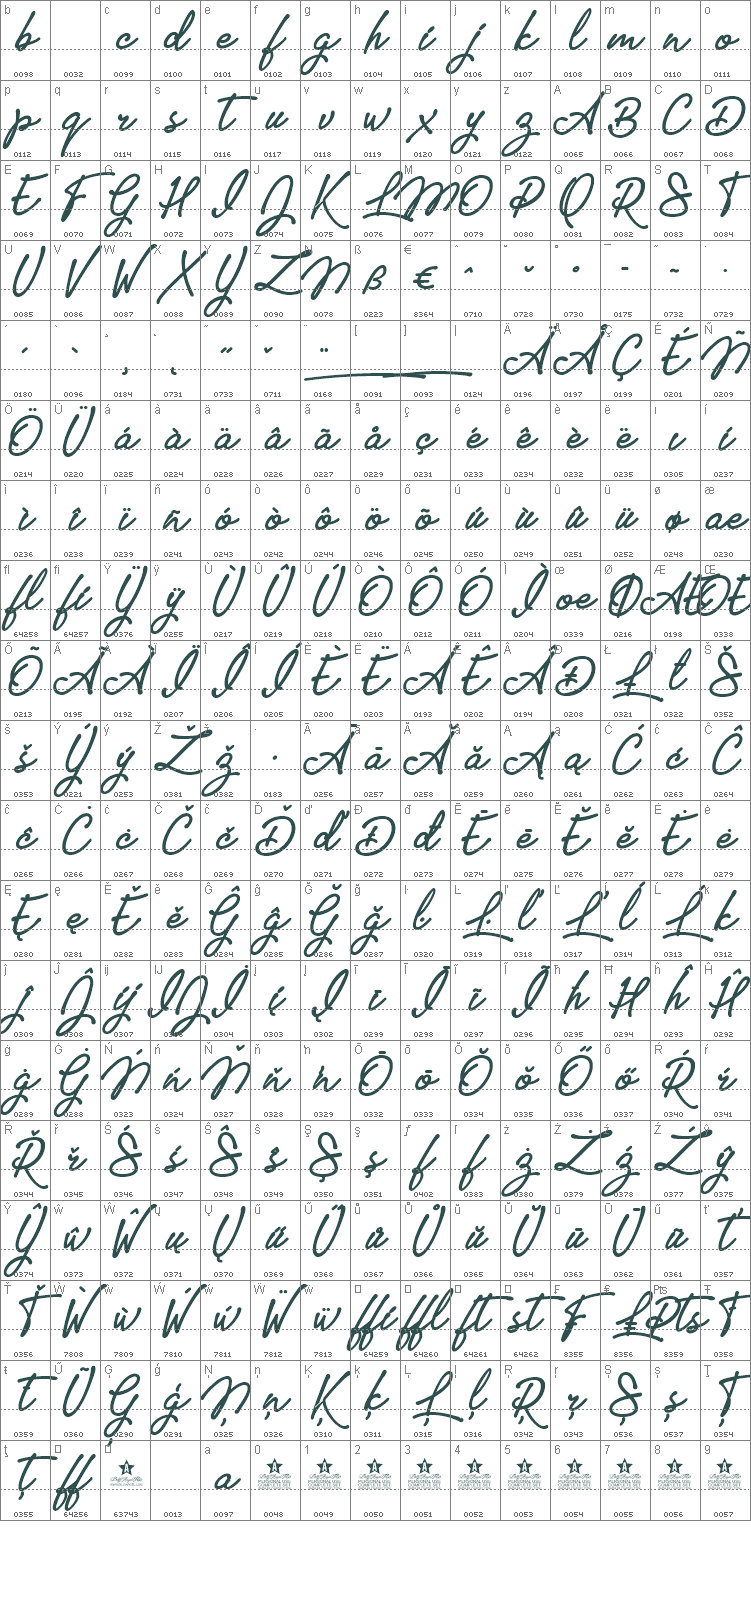 b c d e f g h i j k l m n o
b c d e f g h i j k l m n o
0098 0032 0099 0100 0101 0102 0103 0104 0105 0106 0107 0108 0109 0110 0111
p q r s t u v w x y z A B C D
p q r s t u v w x y z A B C D
0112 0113 0114 0115 0116 0117 0118 0119 0120 0121 0122 0065 0066 0067 0068
E F G H I J K L M O P Q R S T
E F G H I J K L M O P Q R S T
0069 0070 0071 0072 0073 0074 0075 0076 0077 0079 0080 0081 0082 0083 0084
U V W X Y Z N ß € ˆ ˘ ˚ ¯ ˜ ˙
U V W X Y Z N ß € ˆ ˘ ˚ ¯ ˜ ˙
0085 0086 0087 0088 0089 0090 0078 0223 8364 0710 0728 0730 0175 0732 0729
´ ` ¸ ˛ ˝ ˇ ¨ [ ] | Ä Å Ç É Ñ
´ ` ¸ ˛ ˝ ˇ ¨ Ä Å Ç É Ñ
0180 0096 0184 0731 0733 0711 0168 0091 0093 0124 0196 0197 0199 0201 0209
Ö Ü á à ä â ã å ç é ê è ë ı í
Ö Ü á à ä â ã å ç é ê è ë ı í
0214 0220 0225 0224 0228 0226 0227 0229 0231 0233 0234 0232 0235 0305 0237
ì î ï ñ ó ò ô ö õ ú ù û ü ø æ
ì î ï ñ ó ò ô ö õ ú ù û ü ø æ
0236 0238 0239 0241 0243 0242 0244 0246 0245 0250 0249 0251 0252 0248 0230
ﬂ ﬁ Ÿ ÿ Ù Û Ú Ò Ô Ó Ì œ Ø Æ Œ
ﬂ ﬁ Ÿ ÿ Ù Û Ú Ò Ô Ó Ì œ Ø Æ Œ
64258 64257 0376 0255 0217 0219 0218 0210 0212 0211 0204 0339 0216 0198 0338
Õ Ã À Ï Î Í È Ë Á Ê Â Ð Ł ł Š
Õ Ã À Ï Î Í È Ë Á Ê Â Ð Ł ł Š
0213 0195 0192 0207 0206 0205 0200 0203 0193 0202 0194 0208 0321 0322 0352
š Ý ý Ž ž · Ā ā Ă ă Ą ą Ć ć Ĉ
š Ý ý Ž ž · Ā ā Ă ă Ą ą Ć ć Ĉ
0353 0221 0253 0381 0382 0183 0256 0257 0258 0259 0260 0261 0262 0263 0264
ĉ Ċ ċ Č č Ď ď Đ đ Ē ē Ĕ ĕ Ė ė
ĉ Ċ ċ Č č Ď ď Đ đ Ē ē Ĕ ĕ Ė ė
0265 0266 0267 0268 0269 0270 0271 0272 0273 0274 0275 0276 0277 0278 0279
Ę ę Ě ě Ĝ ĝ Ğ ğ ŀ Ŀ ľ Ľ ĺ Ĺ k
Ę ę Ě ě Ĝ ĝ Ğ ğ ŀ Ŀ ľ Ľ ĺ Ĺ k
0280 0281 0282 0283 0284 0285 0286 0287 0320 0319 0318 0317 0314 0313 0312
ĵ Ĵ ĳ Ĳ İ į Į ī Ī ĩ Ĩ ħ Ħ ĥ Ĥ
ĵ Ĵ ĳ Ĳ İ į Į ī Ī ĩ Ĩ ħ Ħ ĥ Ĥ
0309 0308 0307 0306 0304 0303 0302 0299 0298 0297 0296 0295 0294 0293 0292
ġ Ġ Ń ń Ň ň ŉ Ō ō Ŏ ŏ Ő ő Ŕ ŕ
ġ Ġ Ń ń Ň ň ŉ Ō ō Ŏ ŏ Ő ő Ŕ ŕ
0289 0288 0323 0324 0327 0328 0329 0332 0333 0334 0335 0336 0337 0340 0341
Ř ř Ś ś Ŝ ŝ Ş ş ƒ ſ ż Ż ź Ź ŷ
Ř ř Ś ś Ŝ ŝ Ş ş ƒ ſ ż Ż ź Ź ŷ
0344 0345 0346 0347 0348 0349 0350 0351 0402 0383 0380 0379 0378 0377 0375
Ŷ ŵ Ŵ ų Ų ű Ű ů Ů ŭ Ŭ ū Ū ũ ť
Ŷ ŵ Ŵ ų Ų ű Ű ů Ů ŭ Ŭ ū Ū ũ ť
0374 0373 0372 0371 0370 0369 0368 0367 0366 0365 0364 0363 0362 0361 0357
Ť Ẁ ẁ Ẃ ẃ Ẅ ẅ ₣ ₤ ₧ Ŧ
Ť Ẁ ẁ Ẃ ẃ Ẅ ẅ ffi ffl ft st ₣ ₤ Pts Ŧ
0356 7808 7809 7810 7811 7812 7813 64259 64260 64261 64262 8355 8356 8359 0358
ŧ Ũ Ģ ģ Ņ ņ Ķ ķ Ļ ļ Ŗ ŗ Ș ș Ţ
ŧ Ũ Ģ ģ Ņ ņ Ķ ķ Ļ ļ Ŗ ŗ Ș ș Ţ
0359 0360 0290 0291 0325 0326 0310 0311 0315 0316 0342 0343 0536 0537 0354
ţ a 0 1 2 3 4 5 6 7 8 9
ţ ff a
0355 64256 63743 0013 0097 0048 0049 0050 0051 0052 0053 0054 0055 0056 0057